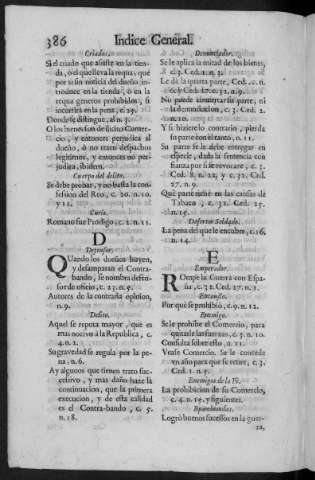 386 Indice General.
Criados.
Si el criado que assiste en la tien-
da, ò el que lleva la requa, que
por si sin noticia del dueño in-
troduce en la tienda, ò en la
requa generos prohibidos, si
incurrirà en la pena, c. 29.
Donde se distingue, al n. 3.
O los bienes son de ilicito Comer-
cio, y entonces perjudica al
dueño, ò no traen despachos
legitimos, y entonces no per-
judica, ibidem.
Cuerpo del delito.
Se debe probar, y no basta la con-
fession del Reo, c. 20. n. 10.
y 12.
Curia.
Romano fue Prodigo, c. 2. n. 11.
D
Defensor.
QUando los dueños huyen,
y desamparan el Contra-
bando, se nombra defen-
sor de oficio, c. 23. n. 5.
Autores de la contraria opinion,
n. 9.
Delito.
Aquel se reputa mayor, que es
mas nocivo à la Republica, c.
4. n. 2.
Su gravedad se regula por la pe-
na. n. 6.
Ay algunos que tienen trato suc-
cessivo, y mas daños hazé la
continuacion, que la primera
execucion, y de esta calidad
es el Contra-bando, c. 5.
n. 18.
Denunciador.
Se le aplica la mitad de los bienes,
c. 3. Ced. 1. n. 3.
Le dà la quarta parte, Ced.
6. y Ced. 27. n. 9.
No puede
la denunciacion, c. 3. Ced.
2. n. 9.
Y si hiziere lo contrario, pierda
su parte con el tanto, n. 11.
Su parte se le debe entregar en
especie, dada la sentencia con
fianza por si se revocare, c. 3.
Ced. 8. n. 22. y c. 32. Ced.
27. n. 9.
Què parte tiene en las causas de
Tabaco, c. 32. Ced. 25.
n. 15.
Desertor Soldado.
La pena del que le encubre, c. 16.
n. 14.
E
Emperador.
ROmpe la Guerra con Espa-
ña, c. 32. Ced. 27. n. 1.
Encaustos.
Por què se prohibiò, c. 9. n. 12.
Enemigo.
Se le prohibe el Comercio, para
quitarle las fuerzas, c. 3. n. 10.
Consulta sobre esto, n. 11.
Vease Comercio. Se le concede
un año para que se retire, c. 3.
Ced. 1. n. 5.
Enemigos de la Fè.
La prohibicion de su Comercio,
c. 4. n. 15. y siguientes.
Epaminondas.
Logrò buenos sucessos en la guer-
ra,